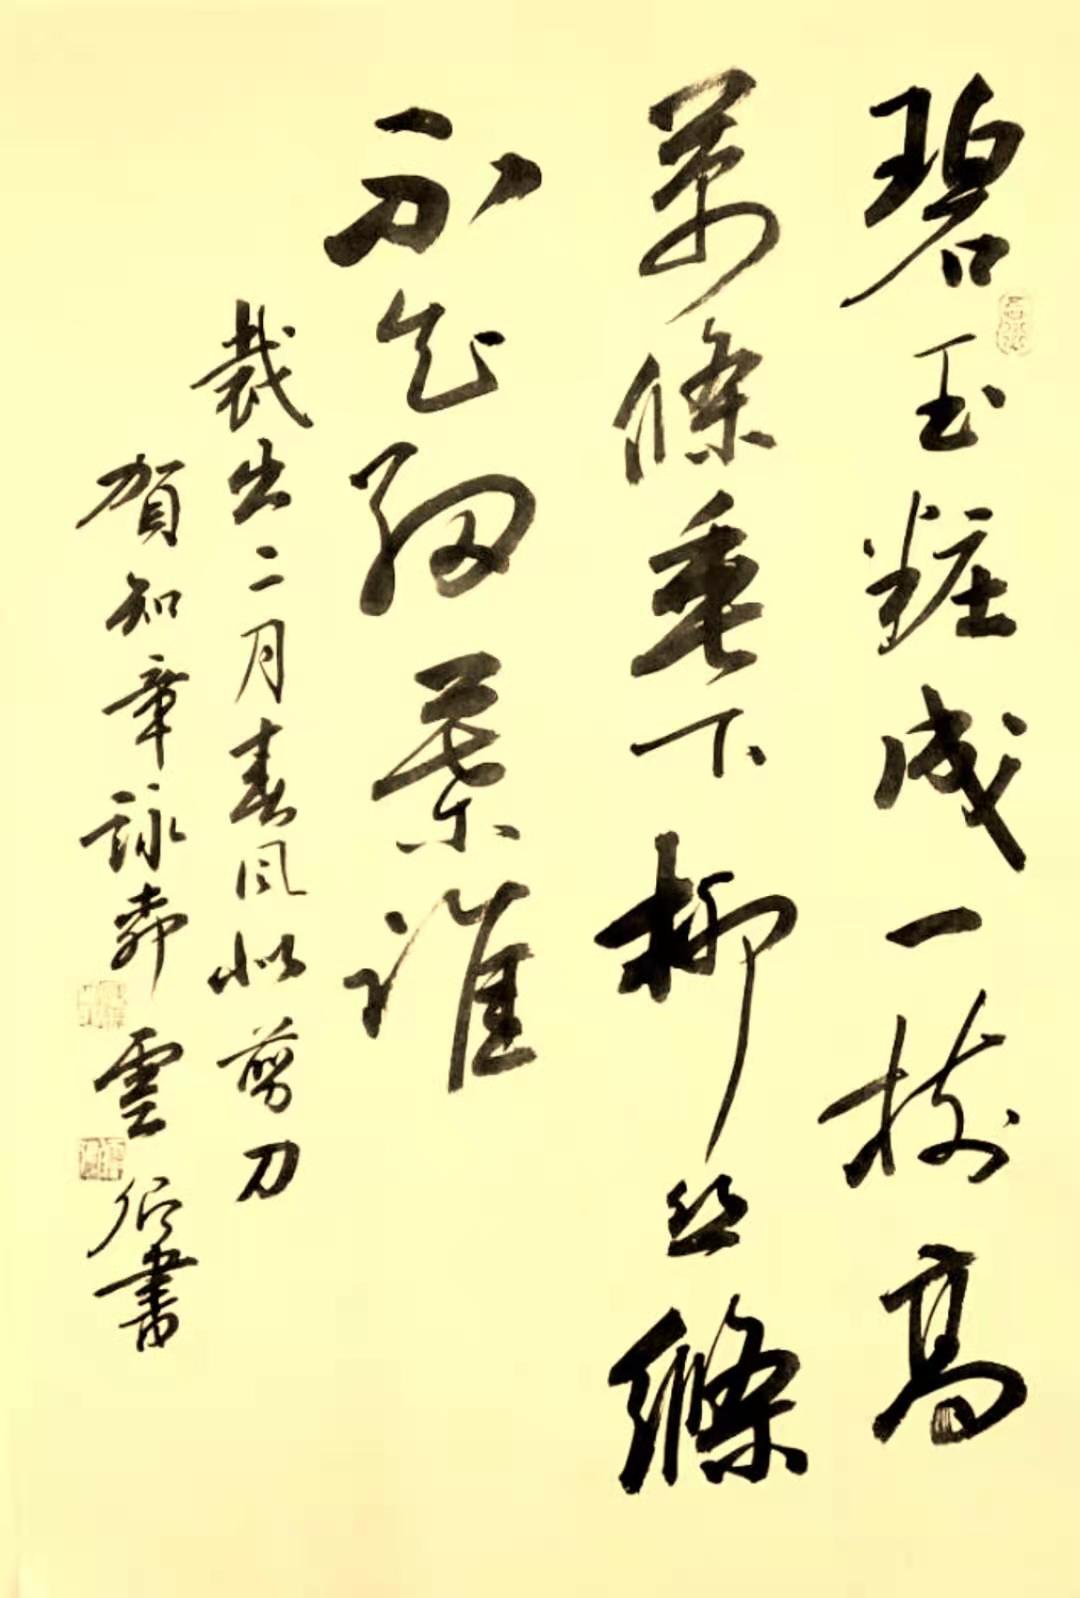 碧玉粧成一樹高
萬條垂下柳丝縧
不知細葉誰
裁出二月春風似剪刀
賀知章詠柳雲行書